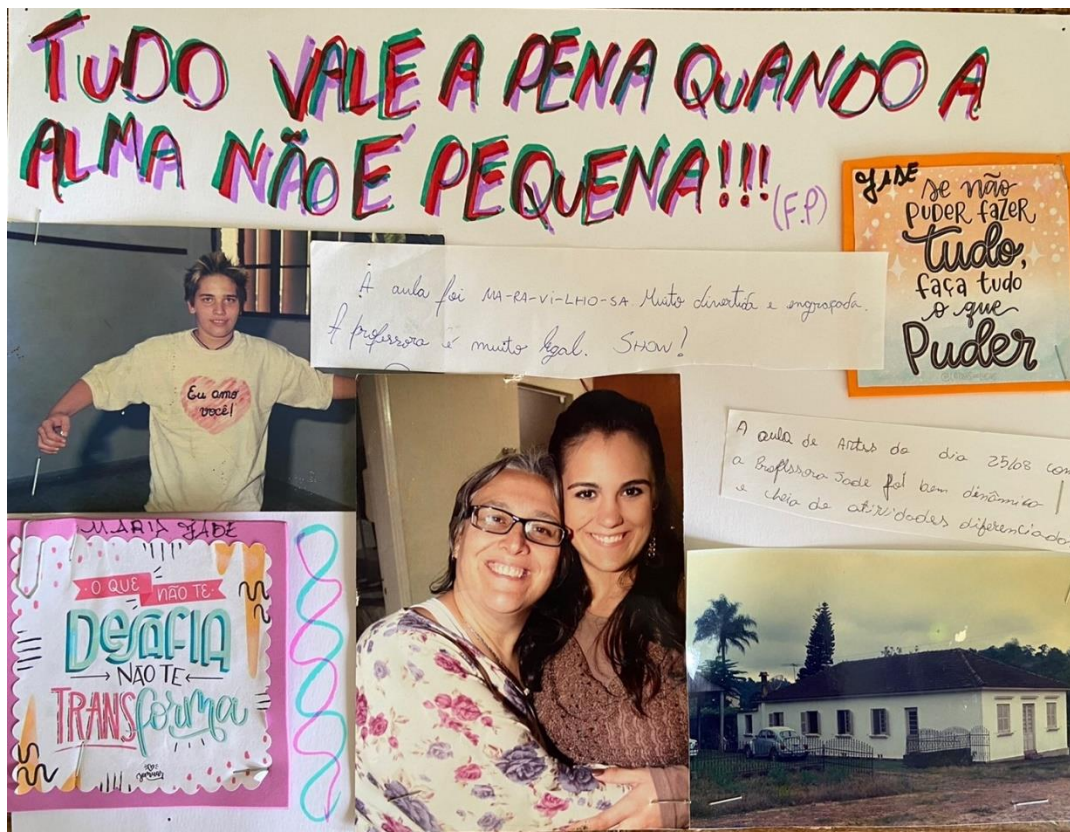 TUDO VALE A PENA QUANDO A
ALMA NÃO É PEQUENA!!! (F.P)
GISE
se não
PUDER FAZER
tudo,
faça tudo
o que
Puder
A aula foi MA-RA-VI-LHO-SA. Muito divertida e engraçada.
A professora é muito legal. SHOW!
Eu amo
você!
A aula de Artes do dia 25/08 com
a professora Jade foi bem dinâmica
e cheia de atividades diferenciadas
MARIA JADE
O QUE NÃO TE
DESAFIA
NÃO TE
TRANSforma